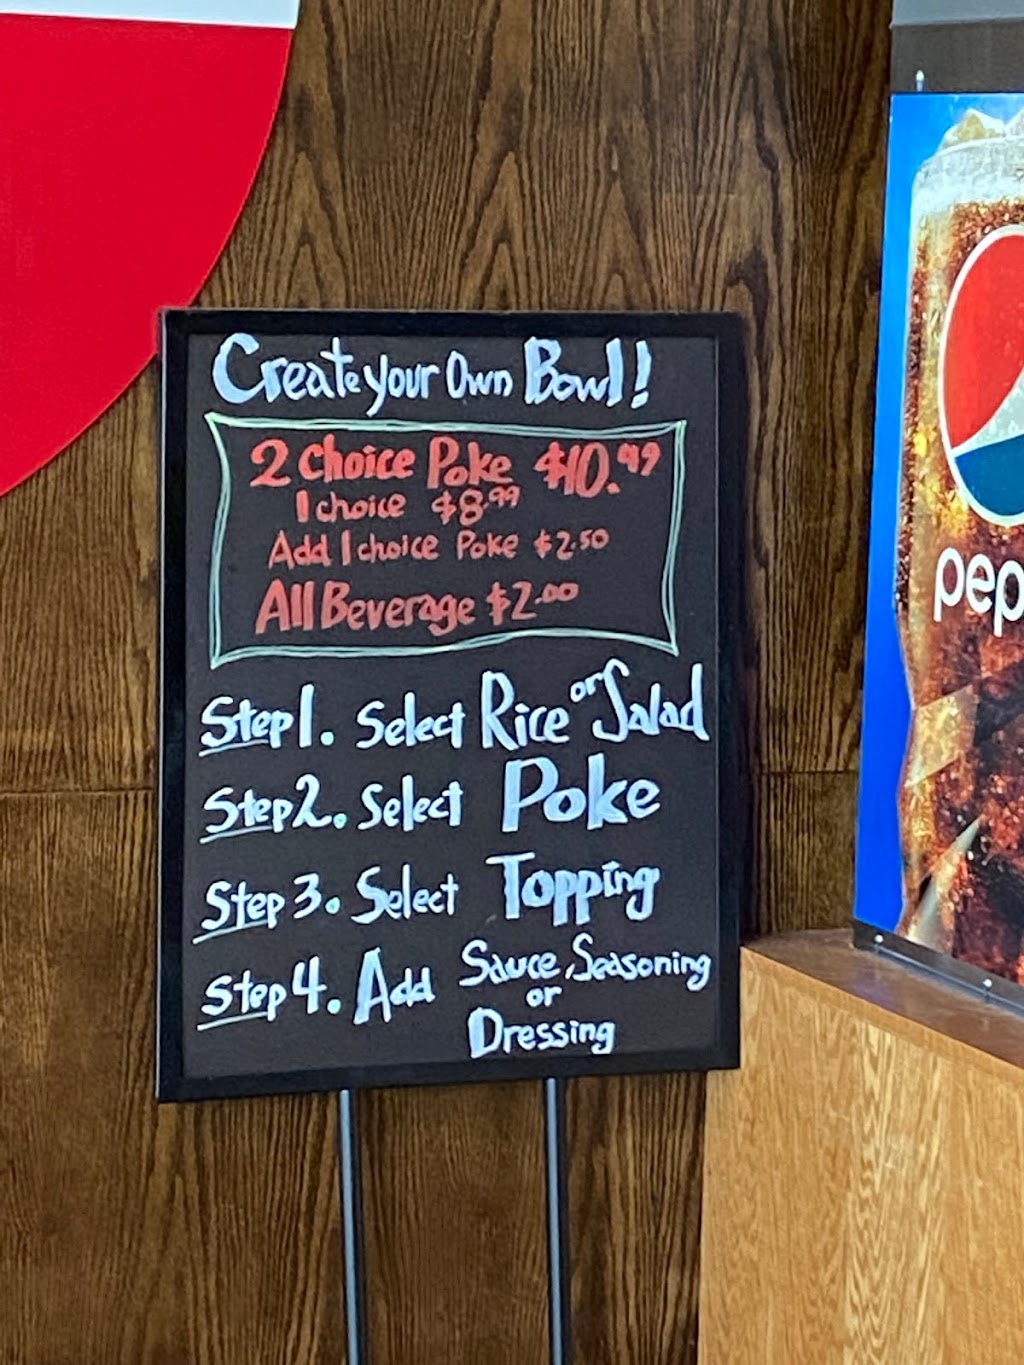 Create your Own Bowl!
2 Choice Poke $10.99
1 choice $8.99
Add 1 choice Poke $2.50
All Beverage $2.00
Step 1. Select Rice or Salad
Step 2. Select Poke
Step 3. Select Topping
Step 4. Add Sauce, Seasoning
or
Dressing
pep